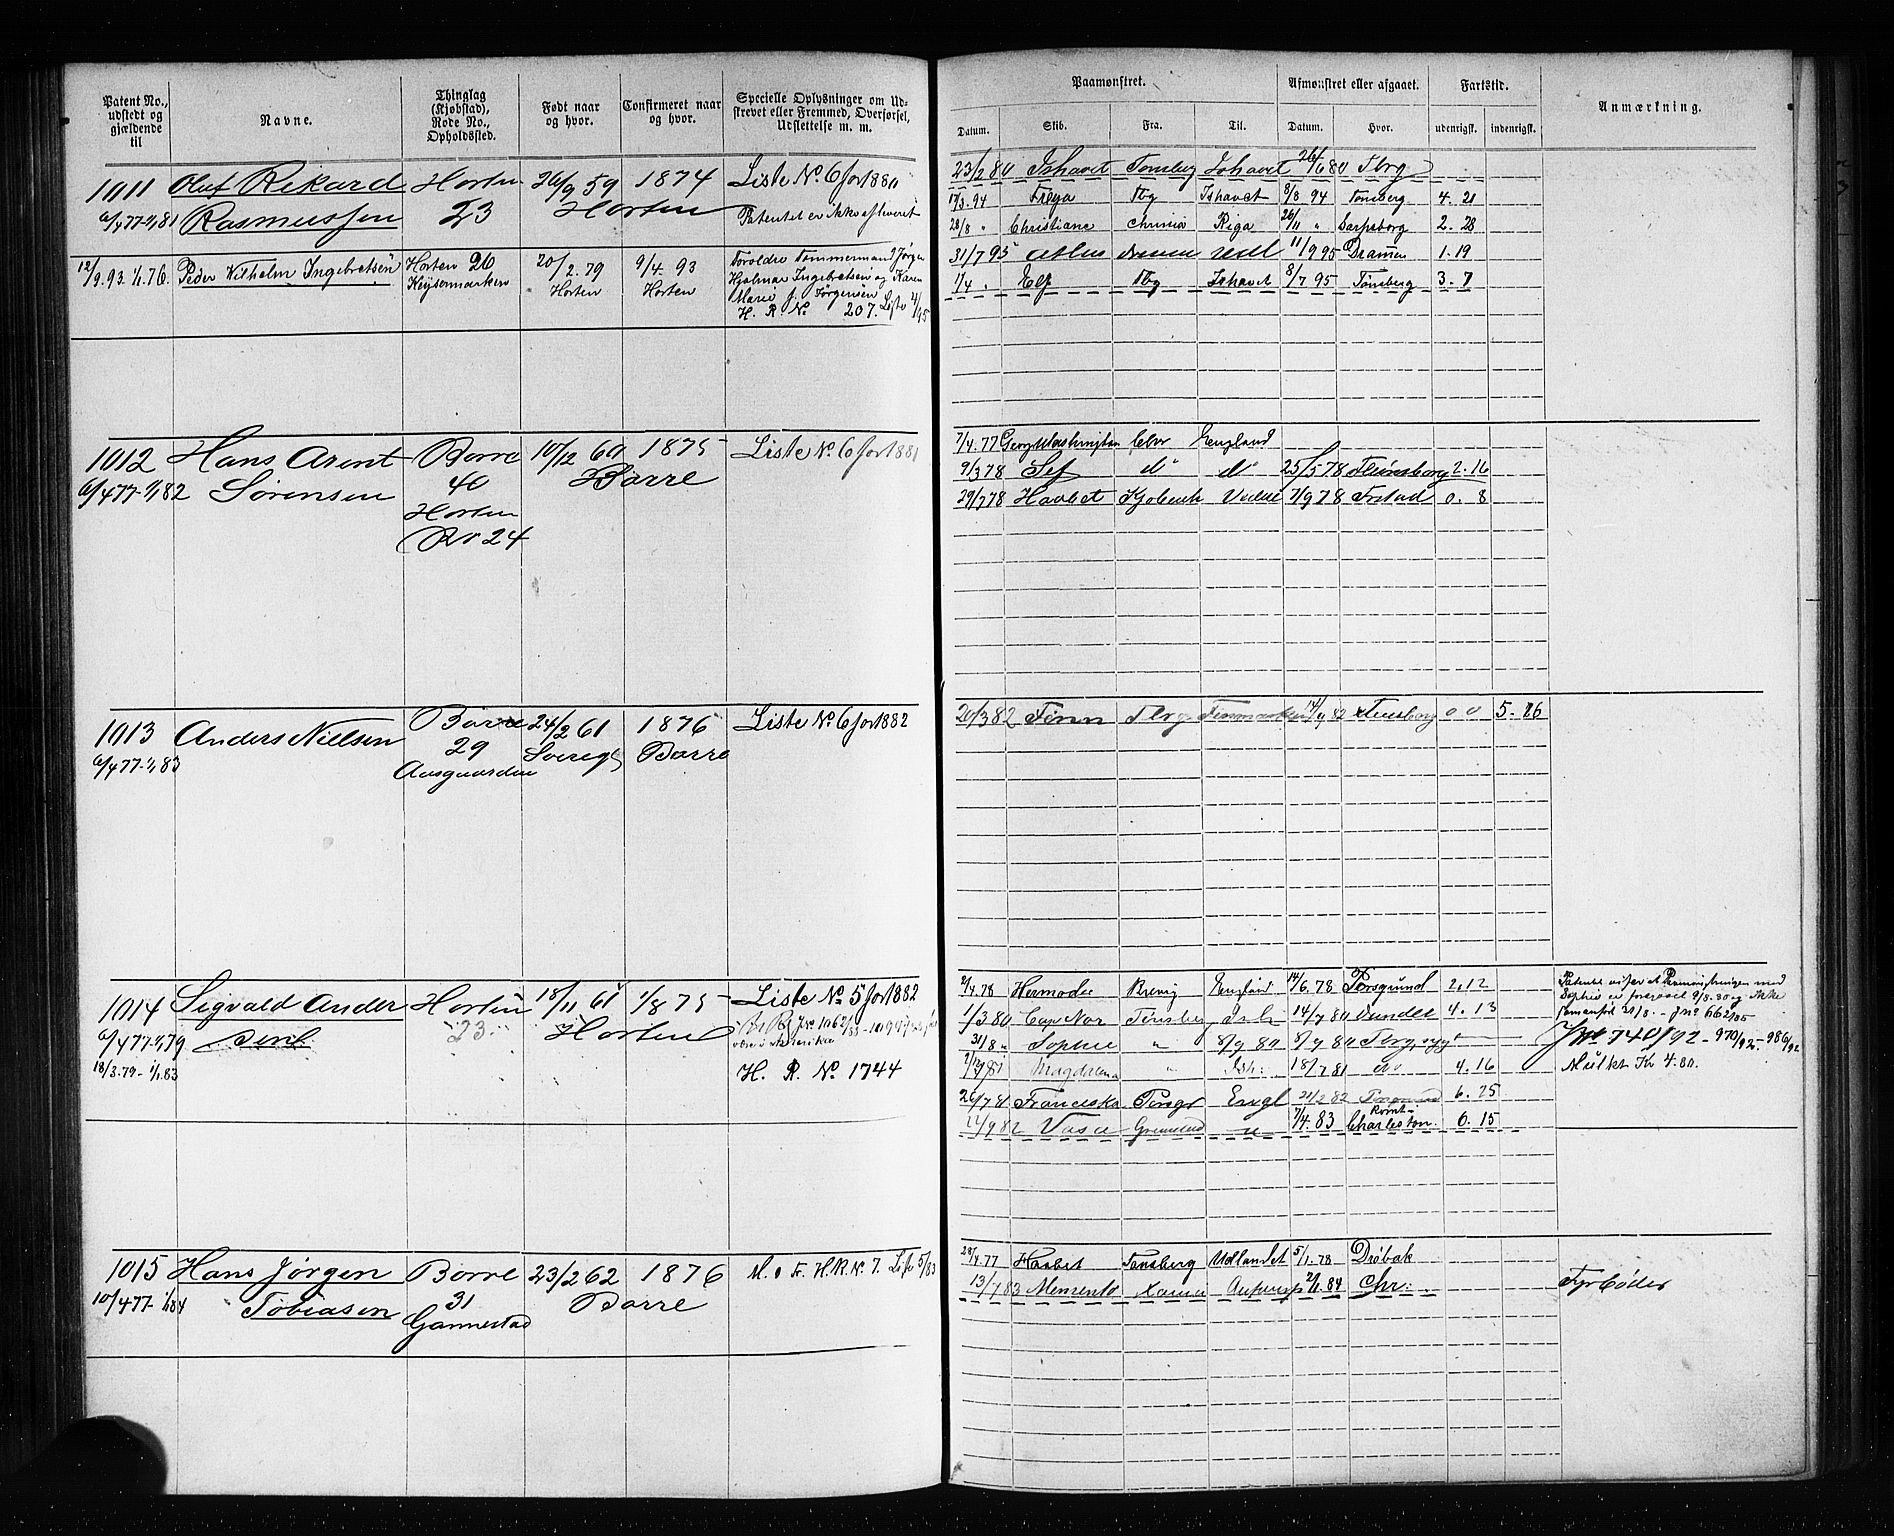 Patent No., udstedt og gjældende til
Navne.
Thinglag (Kjøbstad), Rode No., Opholdssted.
Født naar og hvor.
Confirmeret naar og hvor.
Specielle Oplysninger om Udskrevet eller Fremmed, Overførsel, Udslettelse m. m.
Paamønstret.
Afmønstret eller afgaaet.
Fartstid.
Anmærkning.
Datum. Skib. Fra. Til. Datum. Hvor. udenrigsk. indenrigsk.
1011 Oluf Rikard Horten 26/9 59 1874 Liste No. 6 for 1880
6/4 77-1/1 81 Rasmussen 23 Horten
Patentet er ikke afleveret
23/2 80 Ishavet Tonsberg Ishavet 26/6 80 Tbrg
17/3.94 Freya Tbg Ishavet 8/8 94 Tonsberg 4. 21
28/8 " Christiane Riga 26/11 " Sarpsborg 2. 28
31/7 95 11/9 95 Drammen 1. 19
1/4 . Tbg Ishavet 8/7 95 Tønsberg 3. 7
12/9.93. 1/1.76. Peder Vilhelm Ingebretsen Horten 20 20/2. 79 9/4. 93 Forældre Tømmermand Jørgen
Keysermarken Horten Horten Hjalmar Ingebretsen og Karen
Marie J. Jørgensen
H. R. No 207. Liste 4/95
1012 Hans Arent Borre 10/12 60 1875 Liste No. 6 for 1881
6/4 77-1/1 82 Sørensen 40 Borre
Horten
No 24
7/4.77 Georg Washington England
9/3 78 do do 25/5 78 2. 16
29/7 78 Haabet 7/9 78 Frstad 0. 8
1013 Anders Nielsen Borre 24/2 61 1876 Liste No. 6 for 1882
6/4 77-1/1 83 29 Sverige Borre
Aasgaarden
20/3 82 Finn Tbrg Finmarken 14/9 82 Tønsberg 0 0 5. 26
1014 Sigvald Ander Horten 18/11 61 1/8 75 Liste No. 5 for 1882
6/4 77-1/1 79 sen 23 Horten
18/3.79-1/1.83 H. R. No. 1744
2/4.78 Hermoder Brevig England 14/6.78 Porsgrund 2. 12
1/3 80 Cap Nor Tønsberg Ish. 14/7 80 4. 13
31/8 " Sophie " 8/9 80 8/9 80 Tbrg, syg
Magdalena " Ish: 18/7 81 do 4. 16
26/7 81 Franciska Engl 21/2 82 6. 25
22/9 82 Vasa Grimstad 7/4. 83 Charleston. 6. 15
Jno 740/92 - 970/92 - 986/92
Mulkt Kr 4.80.
1015 Hans Jørgen Borre 23/2 62 1876 M. o F. H. R. No. 7. Liste 5/83
10/4 77-1/1 84 Tobiasen 31 Borre
Gannestad
28/4.77 Haabet Tønsberg Udlandet 5/1.78 Drøbak
13/7 83 Memento 2/1 84 Chr:
Fyrbøder